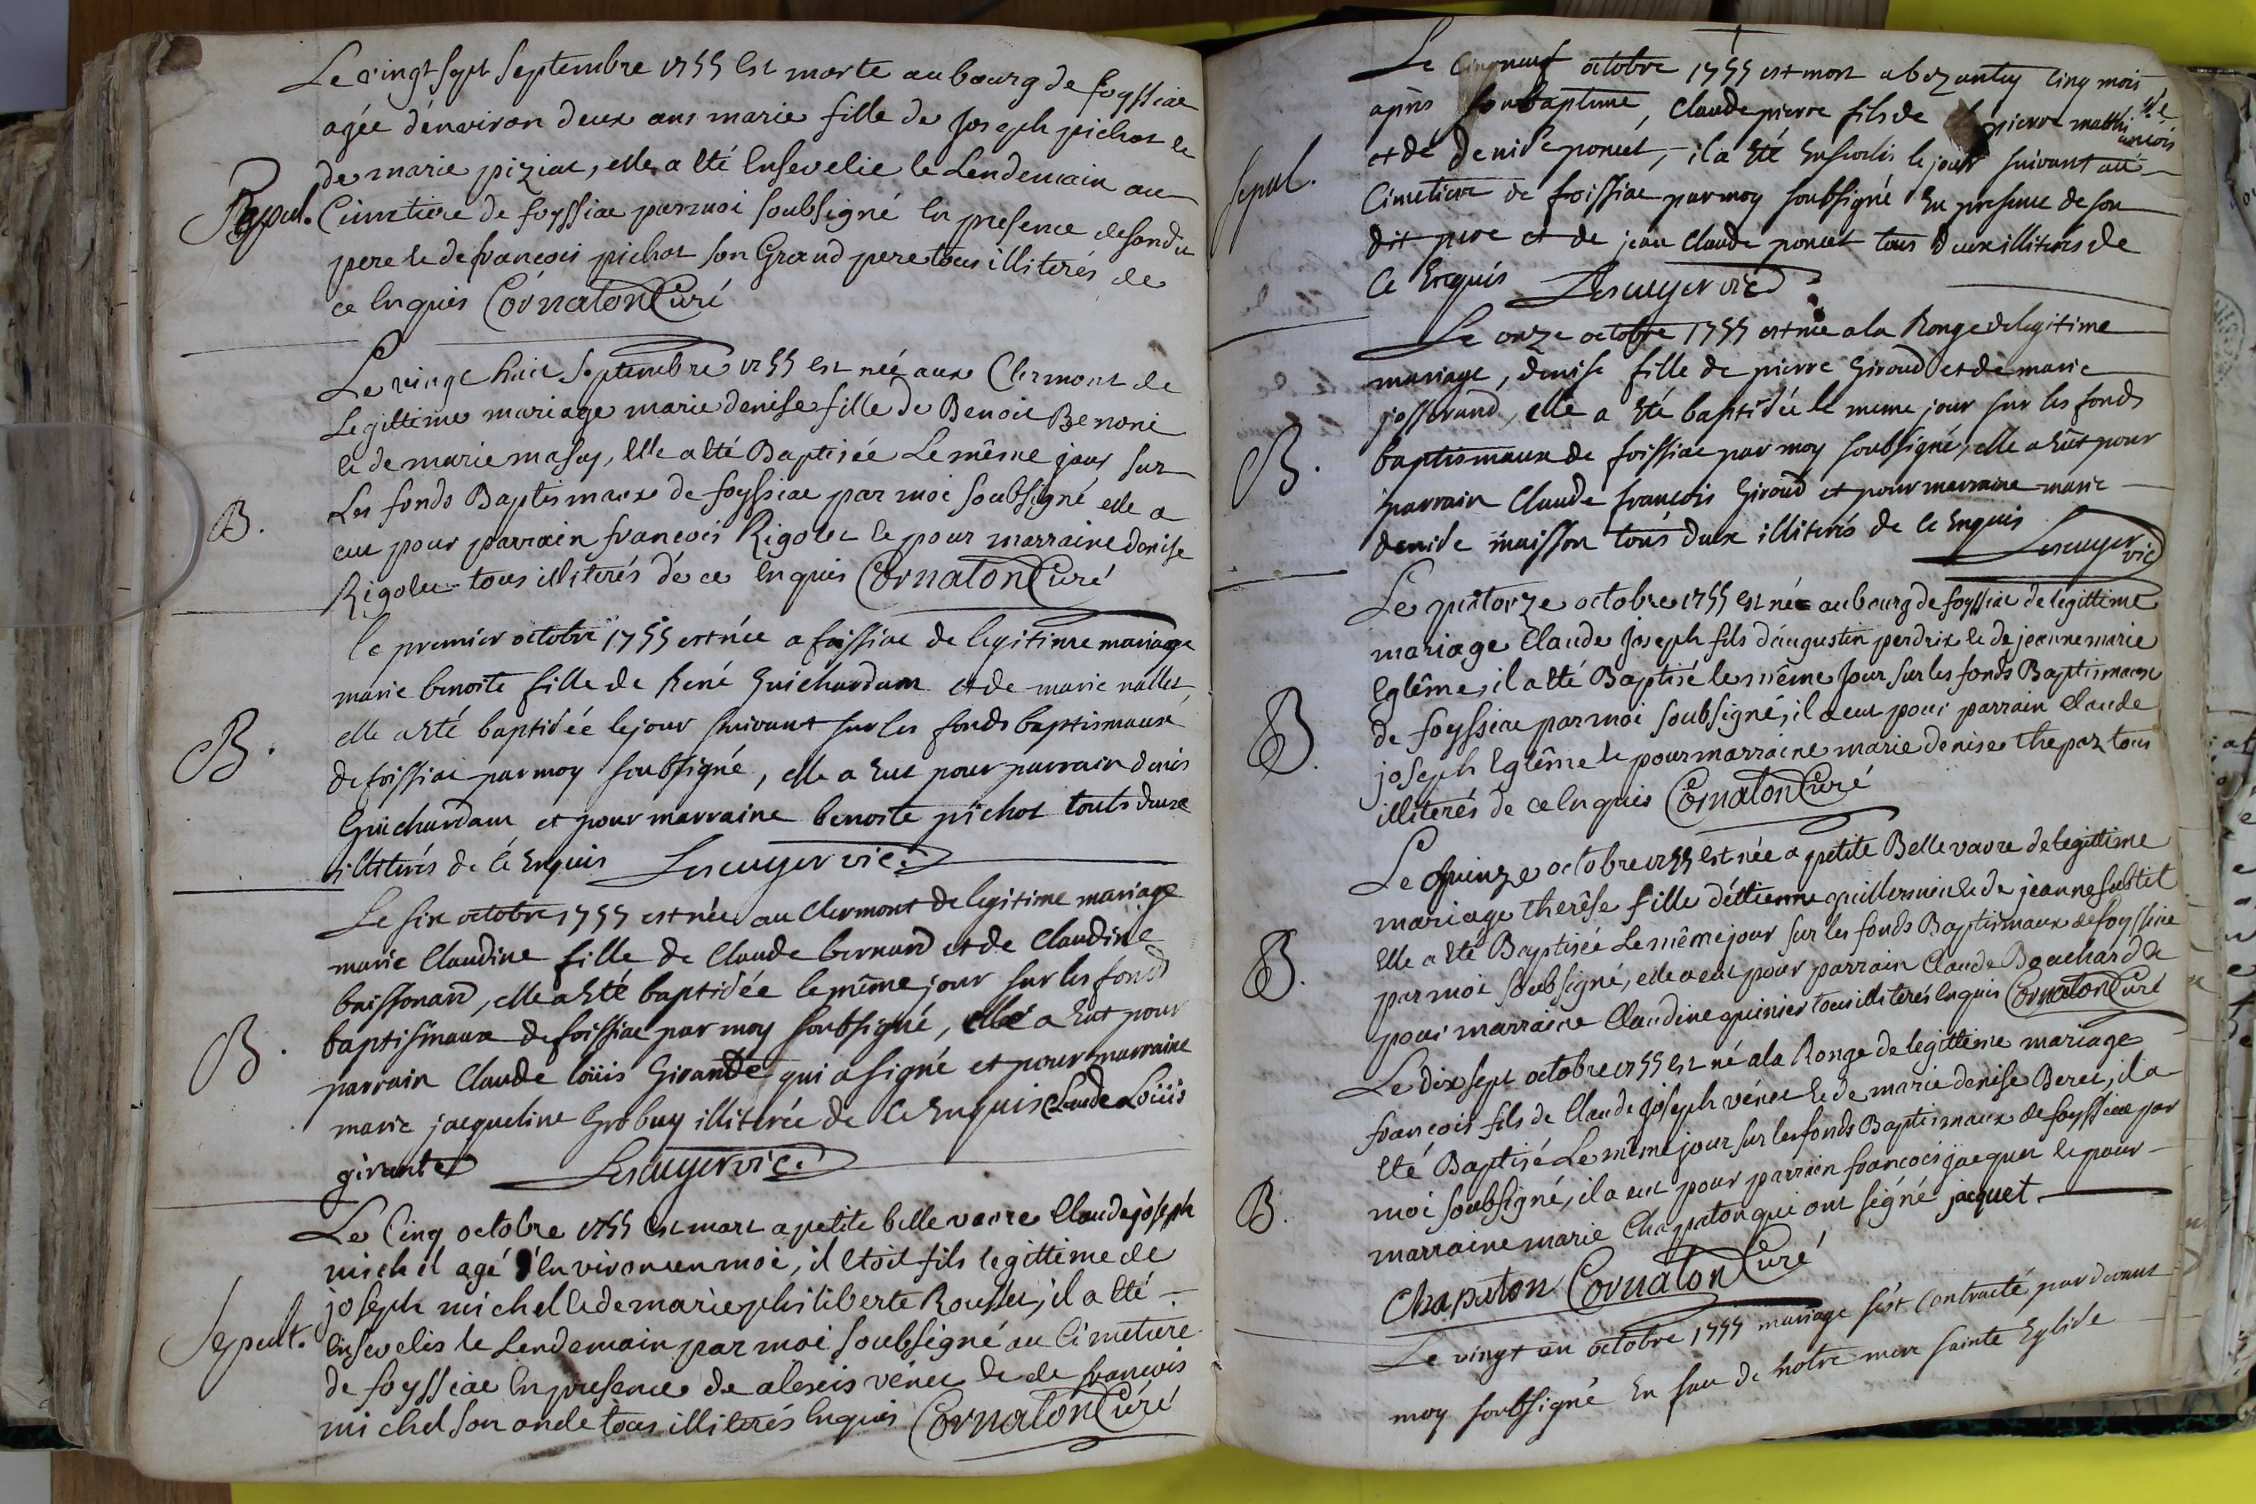 Le vingt sept septembre 1755 est morte au bourg de foyssiac
agée d'environ deux ans marie fille de Joseph pichot et
de marie piziat, elle a été Ensevelie le Lendemain au
Sepul. Cimetiere de foyssiac par moi soubsigné En presence de son dit
pere et de françois pichot son Grand pere tous illiterés de
ce Enquis Cornaton Curé
Le vingt huit septembre 1755 est née aux Clermont de
Legittime mariage marie denise fille de Benoit Benoni
et de marie masuy, Elle a été Baptisée Le même jour sur
B. Les fonds Baptismaux de foyssiac par moi soubsigné elle a
eu pour parrain françois Rigolet et pour marraine denise
Rigolet tous illiterés de ce Enquis Cornaton Curé
le premier octobre 1755 est née a foissiac de legitime mariage
marie benoite fille de René Guichardan et de marie nallet,
elle a Eté baptisée le jour suivant sur les fonds baptismaux
B. de foissiac par moy soubsigné, elle a Eut pour parrain denis
Guichardan et pour marraine benoite pichot touts deux
illiterés de ce Enquis Lescuyer vic.
Le six octobre 1755 est née au Clermont de legitime mariage
marie Claudine fille de Claude bernard et de Claudine
buissonard, elle a Eté baptisée le même jour sur les fonds
B. baptismaux de foissiac par moy soubsigné, elle a Eut pour
parrain Claude loüis Girande qui a signé et pour marraine
marie jacqueline Grobuy illiterée de ce Enquis Claude Loüis
girante Lescuyer vic.
Le Cinq octobre 1755 est mort a petite bellevavre Claude joseph
michel agé d'Environ un moi, il Etoit fils legittime de
joseph michel et de marie philiberte Rousset, il a été
Sepult. Ensevelis le Lendemain par moi soubsigné au Cimetiere
de foyssiac En presence de alexis vénet et de françois
michel son oncle tous illiterés Enquis Cornaton Curé
Le neuf octobre 1755 est mort a bezantuy Cinq mois
apres son baptême, Claude pierre fils de pierre matthi
ançois
et de denise poncet, il a Eté Enseveli le jour suivant au
sepul. Cimetiere de foissiac par moy soubsigné En presence de son
dit pere et de jean Claude poncet tous deux illiterés de
Ce Enquis Lescuyer vic
Le onze octobre 1755 est née a la Ronge de legitime
mariage, denise fille de pierre Giroud et de marie
josserand, elle a Eté baptisée le meme jour sur les fonds
B. baptismaux de foissiac par moy soubsigné, elle a Eut pour
parrain Claude françois Giroud et pour marraine marie
denise muisson tous deux illiterés de ce Enquis Lescuyer
vic
Le quatorze octobre 1755 est né au bourg de foyssiac de legittime
mariage Claude Joseph fils d'augustin perdrix et de jeanne marie
Eglême, il a été Baptisé le même Jour sur les fonds Baptismaux
B. de foyssiac par moi soubsigné, il a eu pour parrain Claude
joseph Eglême et pour marraine marie denise thepaz tous
illiterés de ce Enquis Cornaton Curé
Le Quinze octobre 1755 est née a petite Bellevavre de legittime
mariage therêse fille d'Ettienne guillermin et de jeanne sustil
Elle a Eté Baptisée Le même jour sur les fonds Baptismaux de foyssiac
B. par moi soubsigné, elle a eu pour parrain Claude Bouchard et
pour marraine Claudine guinier tous illiterés Enquis Cornaton Curé
Le dix sept octobre 1755 est né a la Ronge de legittime mariage
françois fils de Claude joseph vénet et de marie denise Beret, il a
Eté Baptisé Le même jour sur les fonds Baptismaux de foyssiac par
B. moi soubsigné, il a eut pour parrain françois jacquet et pour
marraine marie Chapaton qui ont signé jacquet
Chapaton Cornaton Curé
Le vingt un octobre 1755 mariage s'est Contracté par devant
moy soubsigné En face de Notre mere sainte Eglise